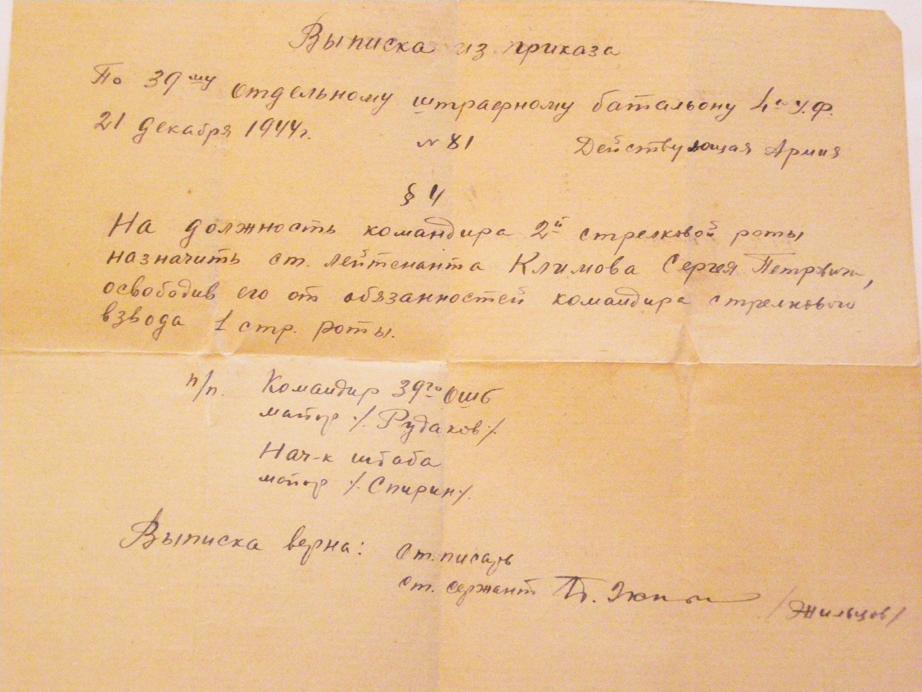 Выписка из приказа
По 39му отдельному штрафному батальону 4го У.Ф.
21 декабря 1944г. № 81 Действующая Армия
§ 4
На должность командира 2й стрелковой роты
назначить ст. лейтенанта Климова Сергея Петровича,
освободив его от обязанностей командира стрелкового
взвода 1 стр. роты.
п/п. Командир 39го ОШБ
майор /.Рудаков/.
Нач-к штаба
майор /.Спирин/.
Выписка верна: Ст. писарь
Ст. сержант
/Жильцов/